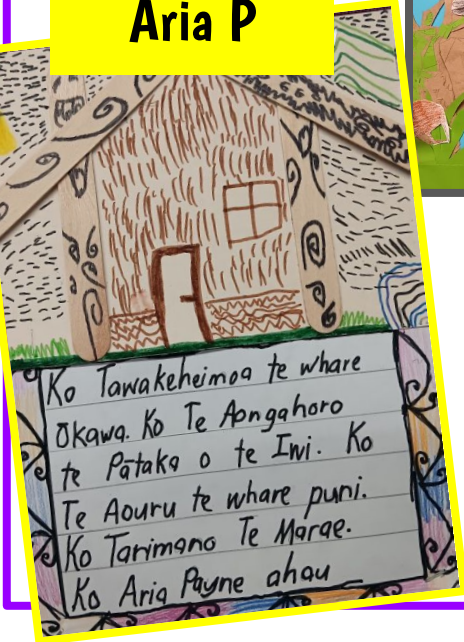 Aria P
Ko Tawakeheimoa te whare
Ōkawa. Ko Te Aongahoro
te Pātaka o te Iwi. Ko
Te Aouru te whare puni.
Ko Tarimano Te Marae.
Ko Aria Payne ahau